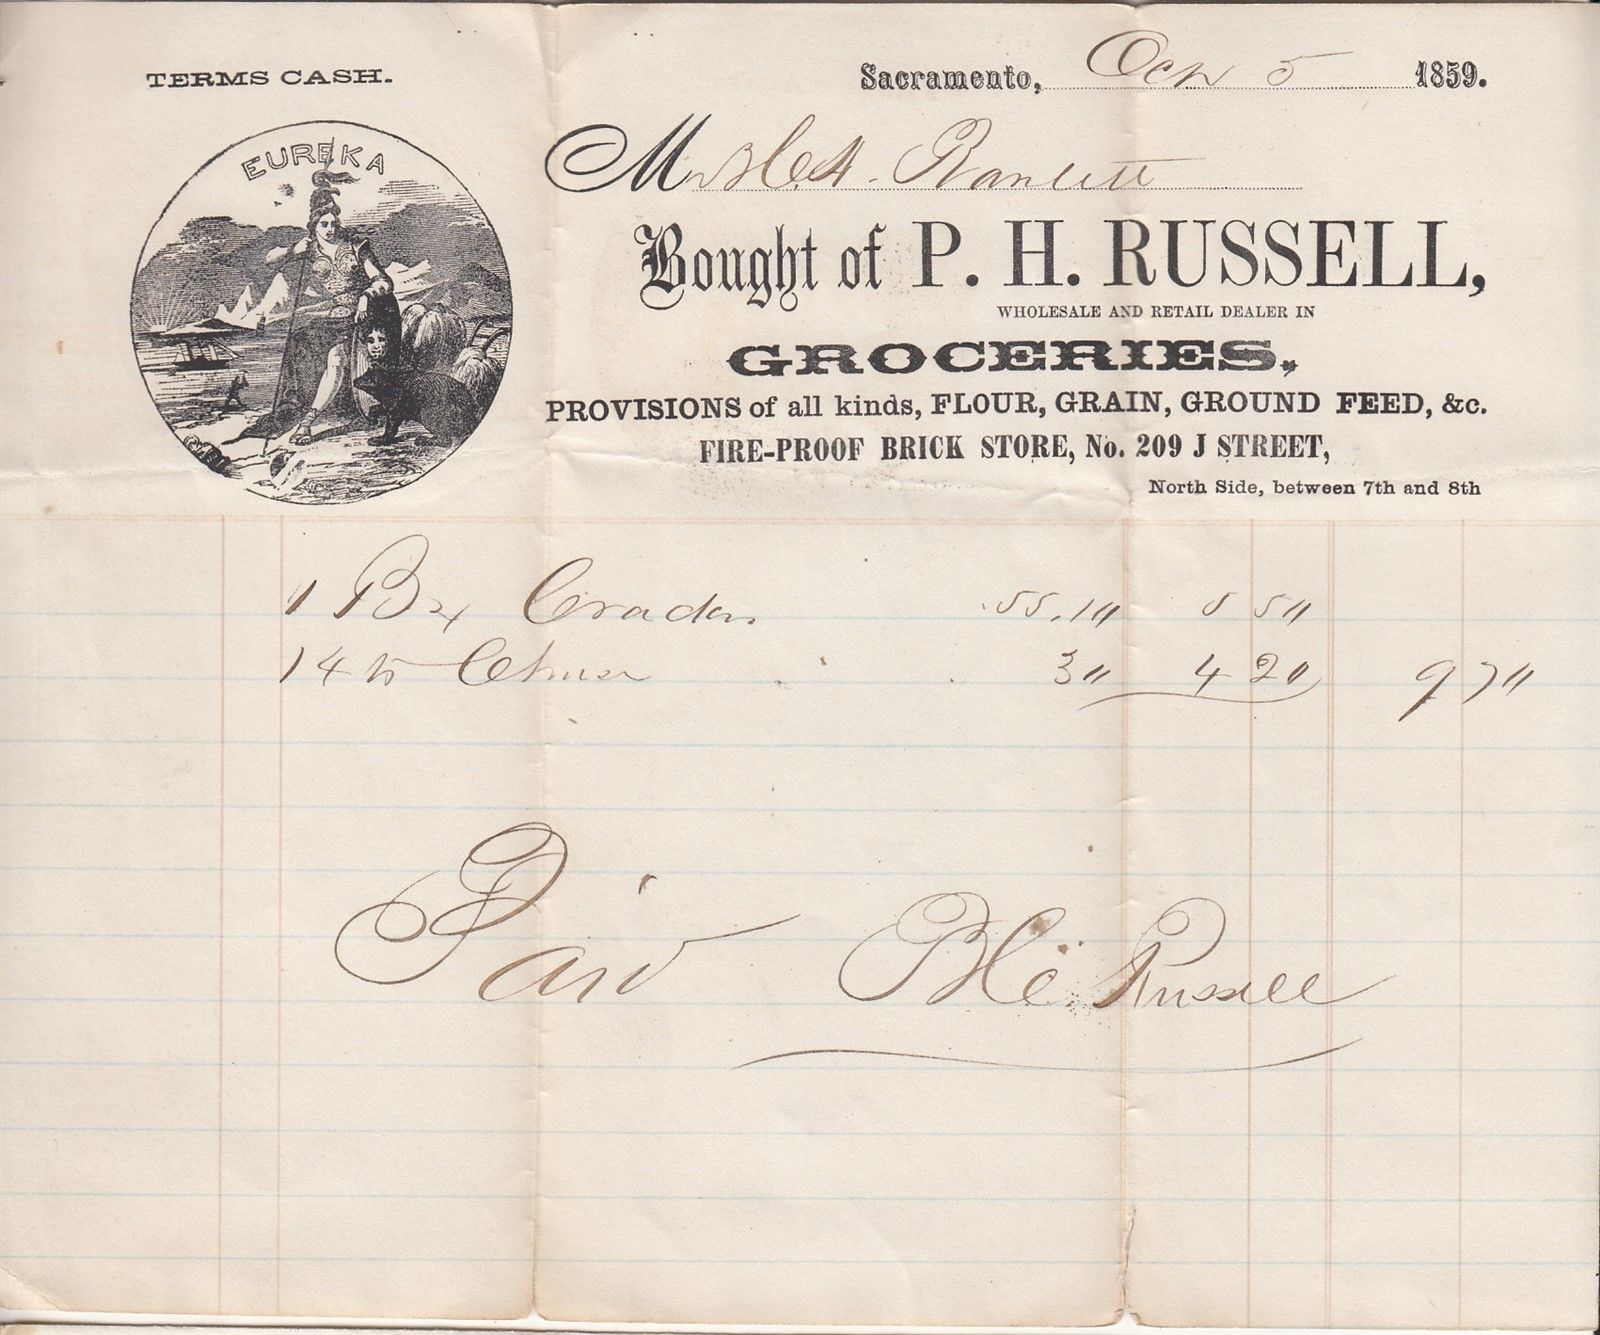 TERMS CASH.
EUREKA
Sacramento, Oct 5 1859.
Mr H. Ranlett
Bought of P. H. RUSSELL,
WHOLESALE AND RETAIL DEALER IN
GROCERIES,
PROVISIONS of all kinds, FLOUR, GRAIN, GROUND FEED, &c.
FIRE-PROOF BRICK STORE, No. 209 J STREET,
North Side, between 7th and 8th
1 Bx 55.10 5 50
14 lb Cheese 30 4 20 9 70
Paid P H Russell